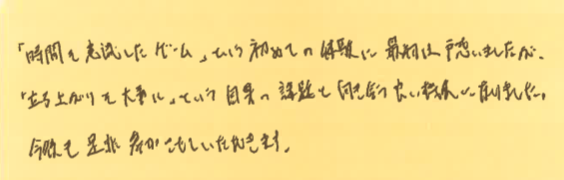 「時間を意識したゲーム」という初めての体験に最初は戸惑いましたが、
「立ち上がりを大事に」という自身の課題と向き合う良い機会になりました。
今後も是非参加させていただきます。